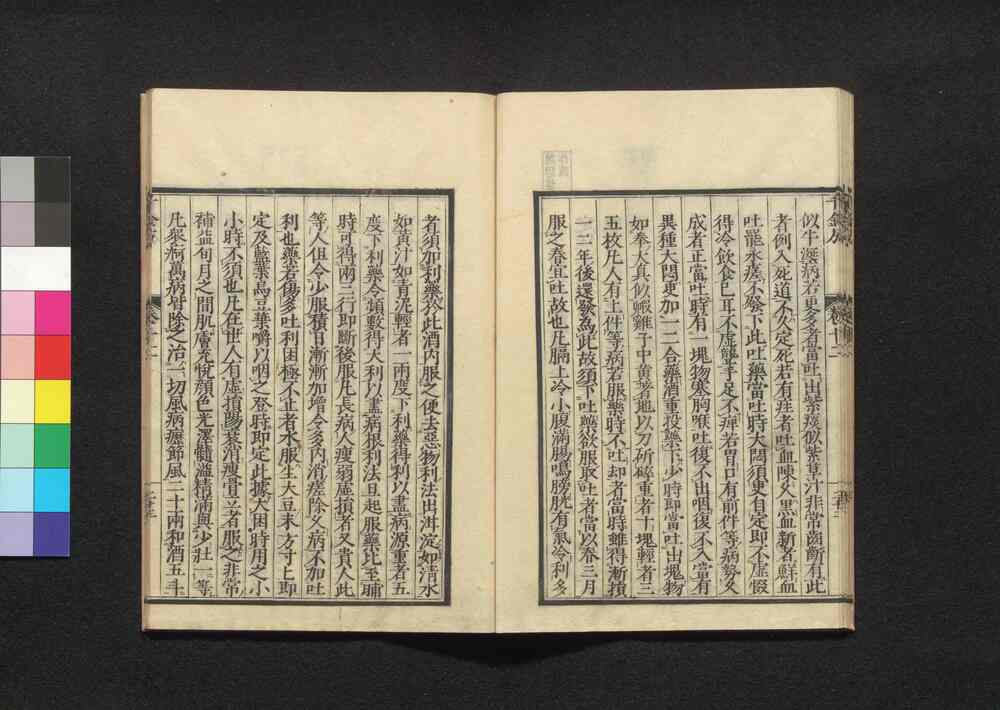 似牛涎病若更多者當吐出紫痰似紫草汁非常齒齗有此
者例入死道不久定死若有疰者吐血陳久黑血新者鮮血
吐罷永瘥不發下此吐藥當吐時大悶須臾自定即不虛假
得冷飲食已耳不虛聾手足不痺若胃口有前件等病勢久
成者正當吐時有一塊物塞胸喉吐復不出咽復不入當有
異種大悶更加一二合藥酒重投藥下少時即當吐出塊物
如拳大真似蝦雞子中黄著地以刀斫碎重者十塊輕者三
五枚凡人有上件等病若服藥時不吐却者當時雖得漸損
一二年後還發為此故須下吐藥欲服取吐者當以春三月
服之春宜吐故也凡膈上冷小腹滿腸鳴膀胱有氣冷利多
者須加利藥於此酒内服之便去惡物利法出㳻淀如清水
如黄汁如青泥輕者一兩度下利藥得利以盡病源重者五
度下利藥令頻數得大利以盡病根利法旦起服藥比至晡
時可得兩三行即斷後服凡長病人瘦弱虛損者又貴人此
等人但令少服積日漸漸加增令多内消瘥除久病不加吐
利也藥若傷多吐利困極不止者水服生大豆末方寸匕即
定及藍葉烏豆葉嚼以咽之登時即定此據大困時用之小
小時不須也凡在世人有虛損陽衰消瘦骨立者服之非常
補益旬月之間肌膚充悅顏色光澤髓溢精滿與少壯一等
凡衆痾萬病皆除之治一切風病歷節風二十兩和酒五斗